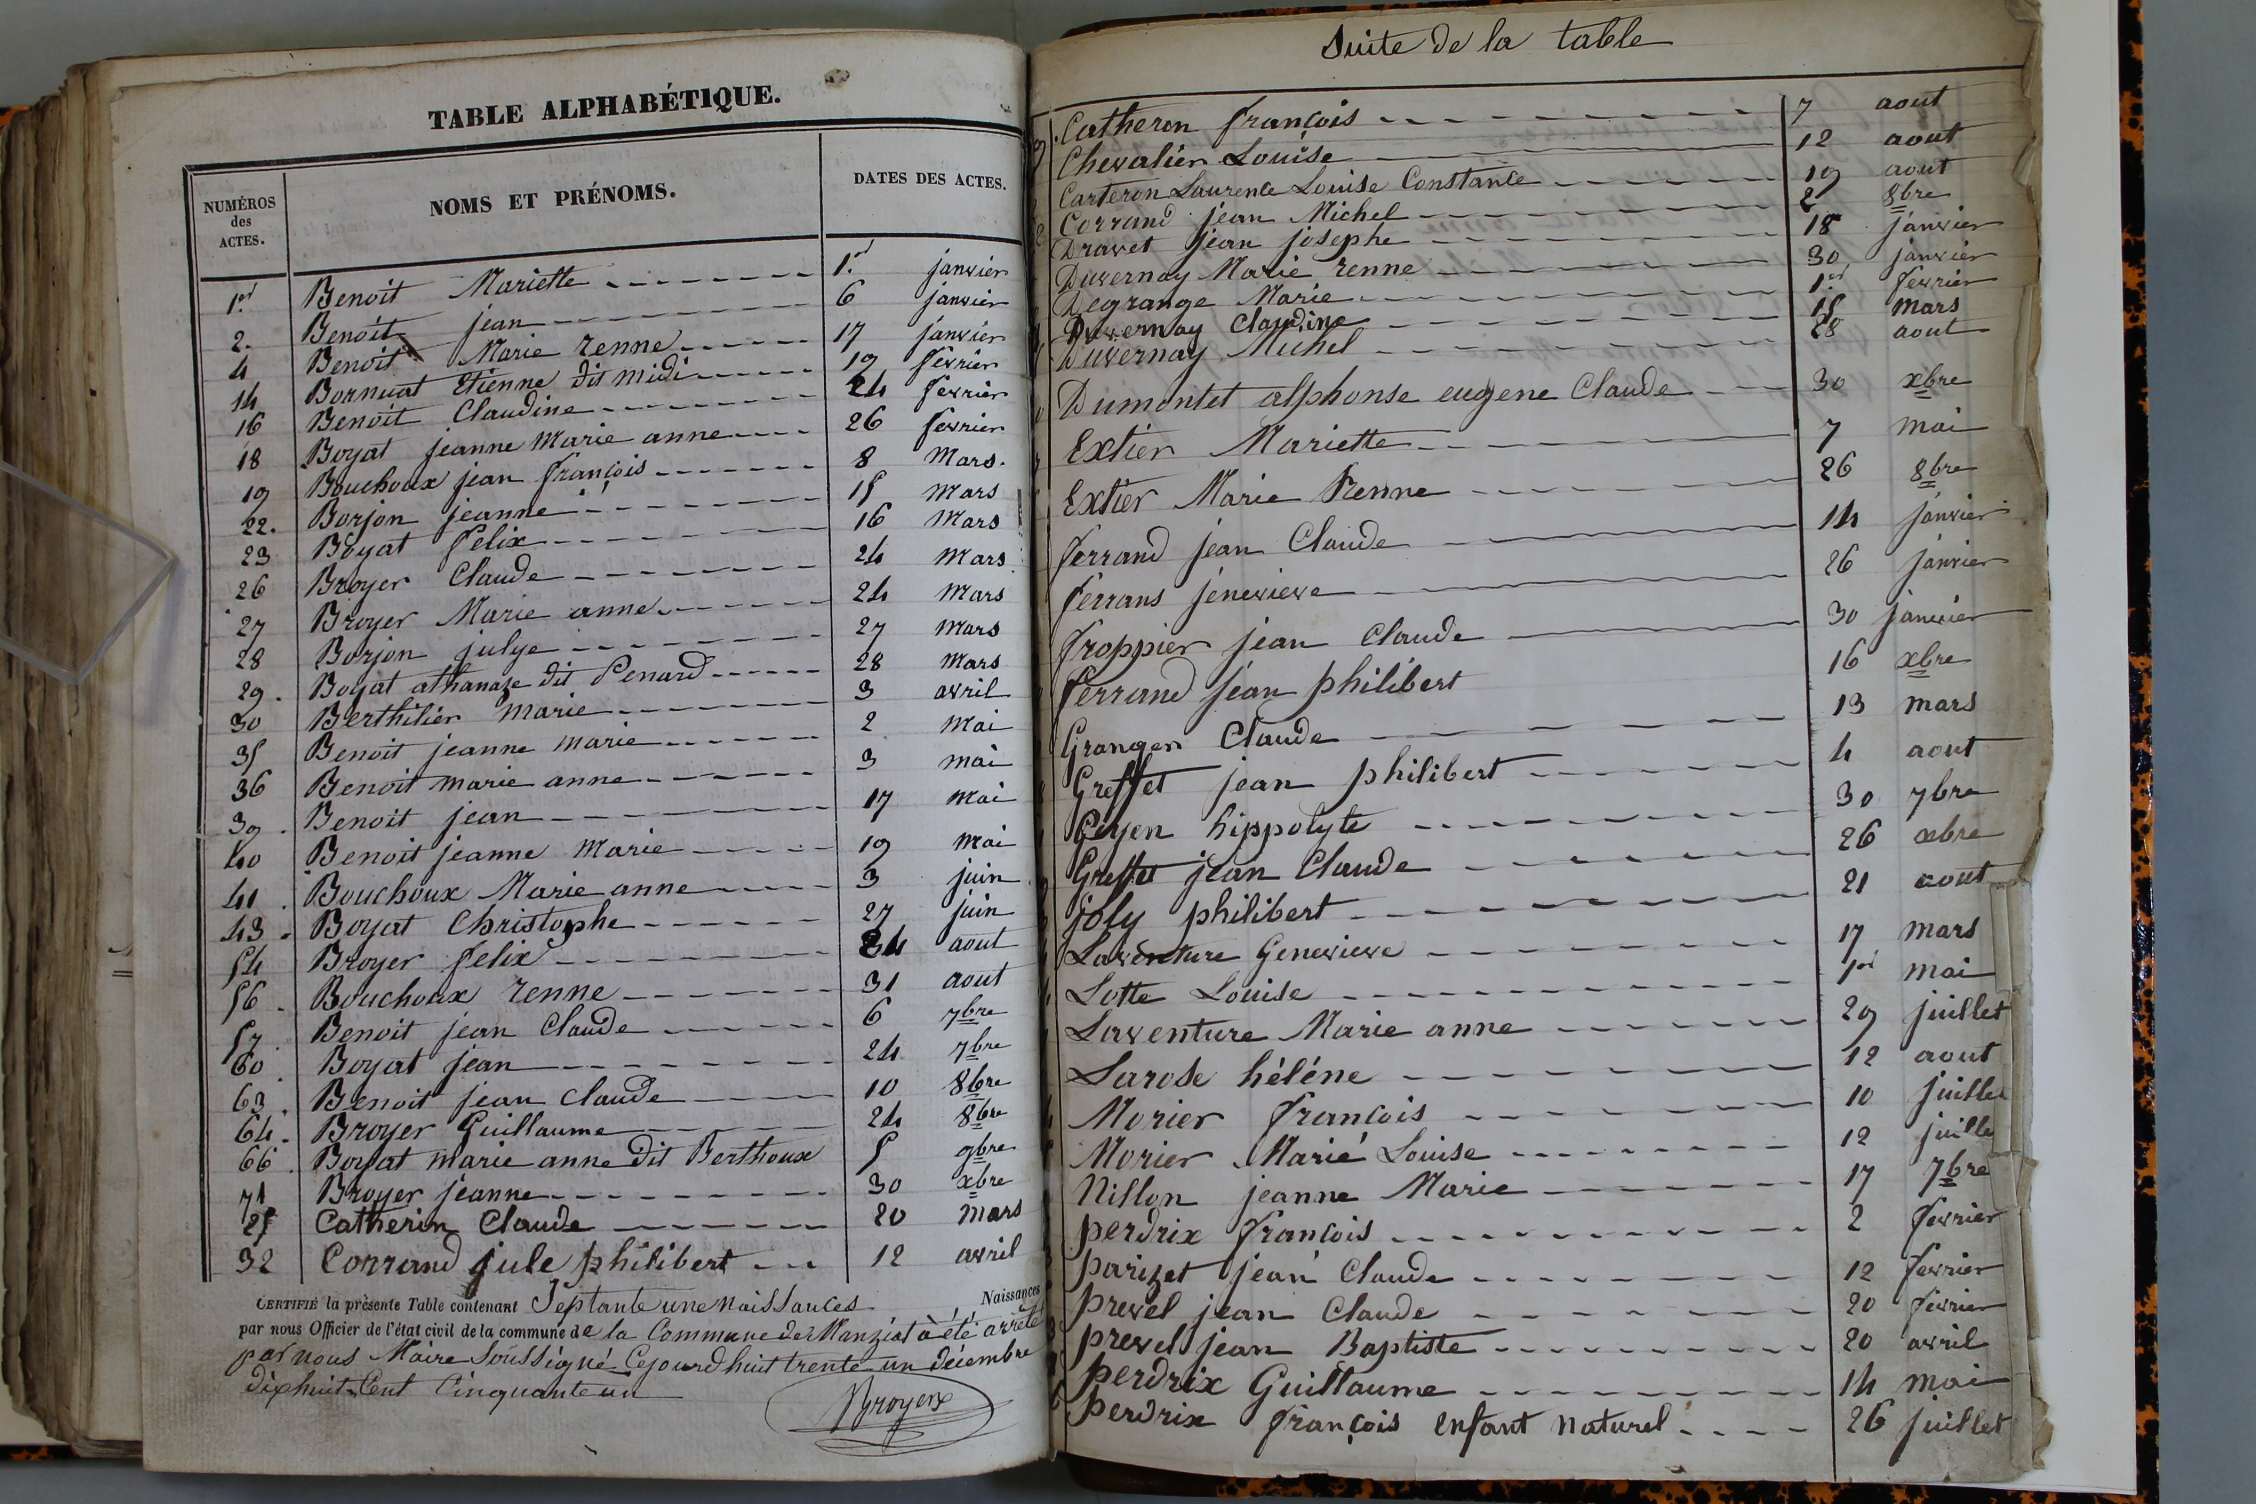 TABLE ALPHABÉTIQUE.
NUMÉROS des ACTES. NOMS ET PRÉNOMS. DATES DES ACTES.
1er Benoit Mariette 1er janvier
2. Benoit jean 6 janvier
4 Benoit Marie renne 17 janvier
14 Bornuat Etienne dit midi 19 fevrier
16 Benoit Claudine 24 fevrier
18 Boyat jeanne Marie anne 26 fevrier
19 Bouchoux jean françois 8 Mars.
22. Borjon jeanne 15 Mars
23 Boyat felix 16 Mars
26 Broyer Claude 24 Mars
27 Broyer Marie anne 24 Mars
28 Borjon julye 27 Mars
29. Boyat athanaze dit Penard 28 Mars
30 Berthilier marie 3 avril
35 Benoit jeanne marie 2 Mai
36 Benoit marie anne 3 mai
39. Benoit jean 17 Mai
40 Benoit jeanne Marie 19 Mai
41. Bouchoux Marie anne 3 juin
43. Boyat Christophe 27 juin
54 Broyer felix 24 aout
56. Bouchoux renne 31 aout
57 Benoit jean Claude 6 7bre
60. Boyat jean 24 7bre
63. Benoit jean Claude 10 8bre
64. Broyer Guillaume 24 8bre
66. Boyat marie anne dit Berthoux 5 9bre
71 Broyer jeanne 30 xbre
25 Catherin Claude 20 Mars
32 Corrand jule philibert 12 avril
CERTIFIÉ la présente Table contenant Septante une naissances Naissances
par nous Officier de l'état civil de la commune de la Commune de Manziat à été arrêté
par nous Maire Soussigné Cejourdhuit trente un décembre
dixhuit Cent Cinquante un
Broyer
Suite de la table
Catheron françois 7 aout
Chevalier Louise 12 aout
Carteron Laurence Louise Constance 19 aout
Corrand jean Michel 2 8bre
Dravet jean josephe 18 janvier
Duvernay Marie renne 30 janvier
Degrange Marie 1er fevrier
Duvernay Claudine 15 Mars
Duvernay Michel 28 aout
Dumontet alphonse eugene Claude 30 xbre
Extier Mariette 7 mai
Extier Marie Renne 26 8bre
ferrand jean Claude 14 janvier
ferrans jenevieve 26 janvier
froppier jean Claude 30 janvier
ferrand jean philibert 16 xbre
Granger Claude 13 mars
Greffet jean philibert 4 aout
Geyen hippolyte 30 7bre
Greffet jean Claude 26 xbre
joly philibert 21 aout
Laventure Genevieve 17 mars
Lotte Louise 1er mai
Laventure Marie anne 29 juillet
Larose héléne 12 aout
Morier françois 10 juillet
Morier Marie Louise 12 juillet
Nillon jeanne Marie 17 7bre
perdrix françois 2 fevrier
parizet jean Claude 12 fevrier
prevel jean Claude 20 fevrier
prevel jean Baptiste 20 avril
perdrix Guillaume 14 mai
perdrix françois enfant naturel 26 juillet